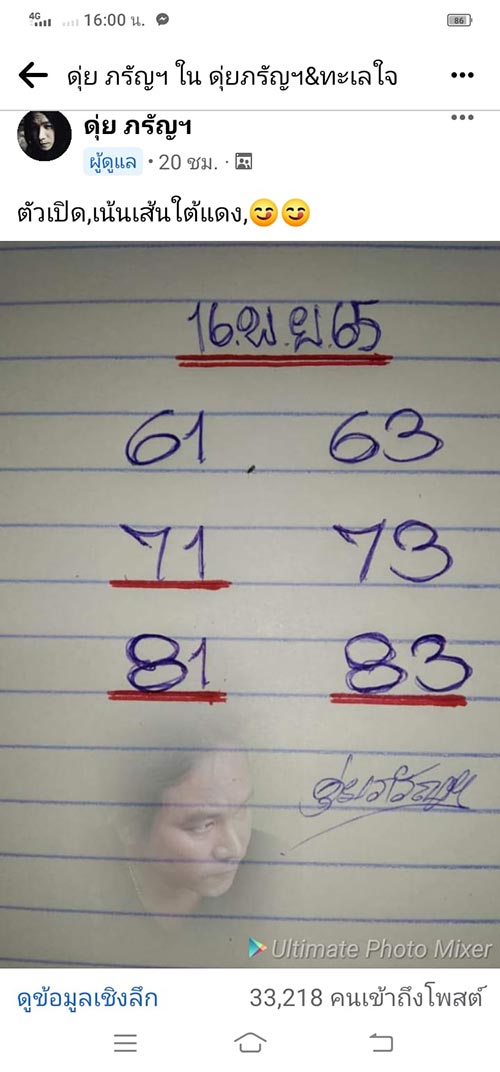 4G 16:00 น. 86
ดุ่ย ภรัญฯ ใน ดุ่ยภรัญฯ&ทะเลใจ
ดุ่ย ภรัญฯ
ผู้ดูแล · 20 ชม. ·
ตัวเปิด,เน้นเส้นใต้แดง,😋😋
16.พ.ย.65
61 63
71 73
81 83
ดุ่ยภรัญฯ
Ultimate Photo Mixer
ดูข้อมูลเชิงลึก 33,218 คนเข้าถึงโพสต์